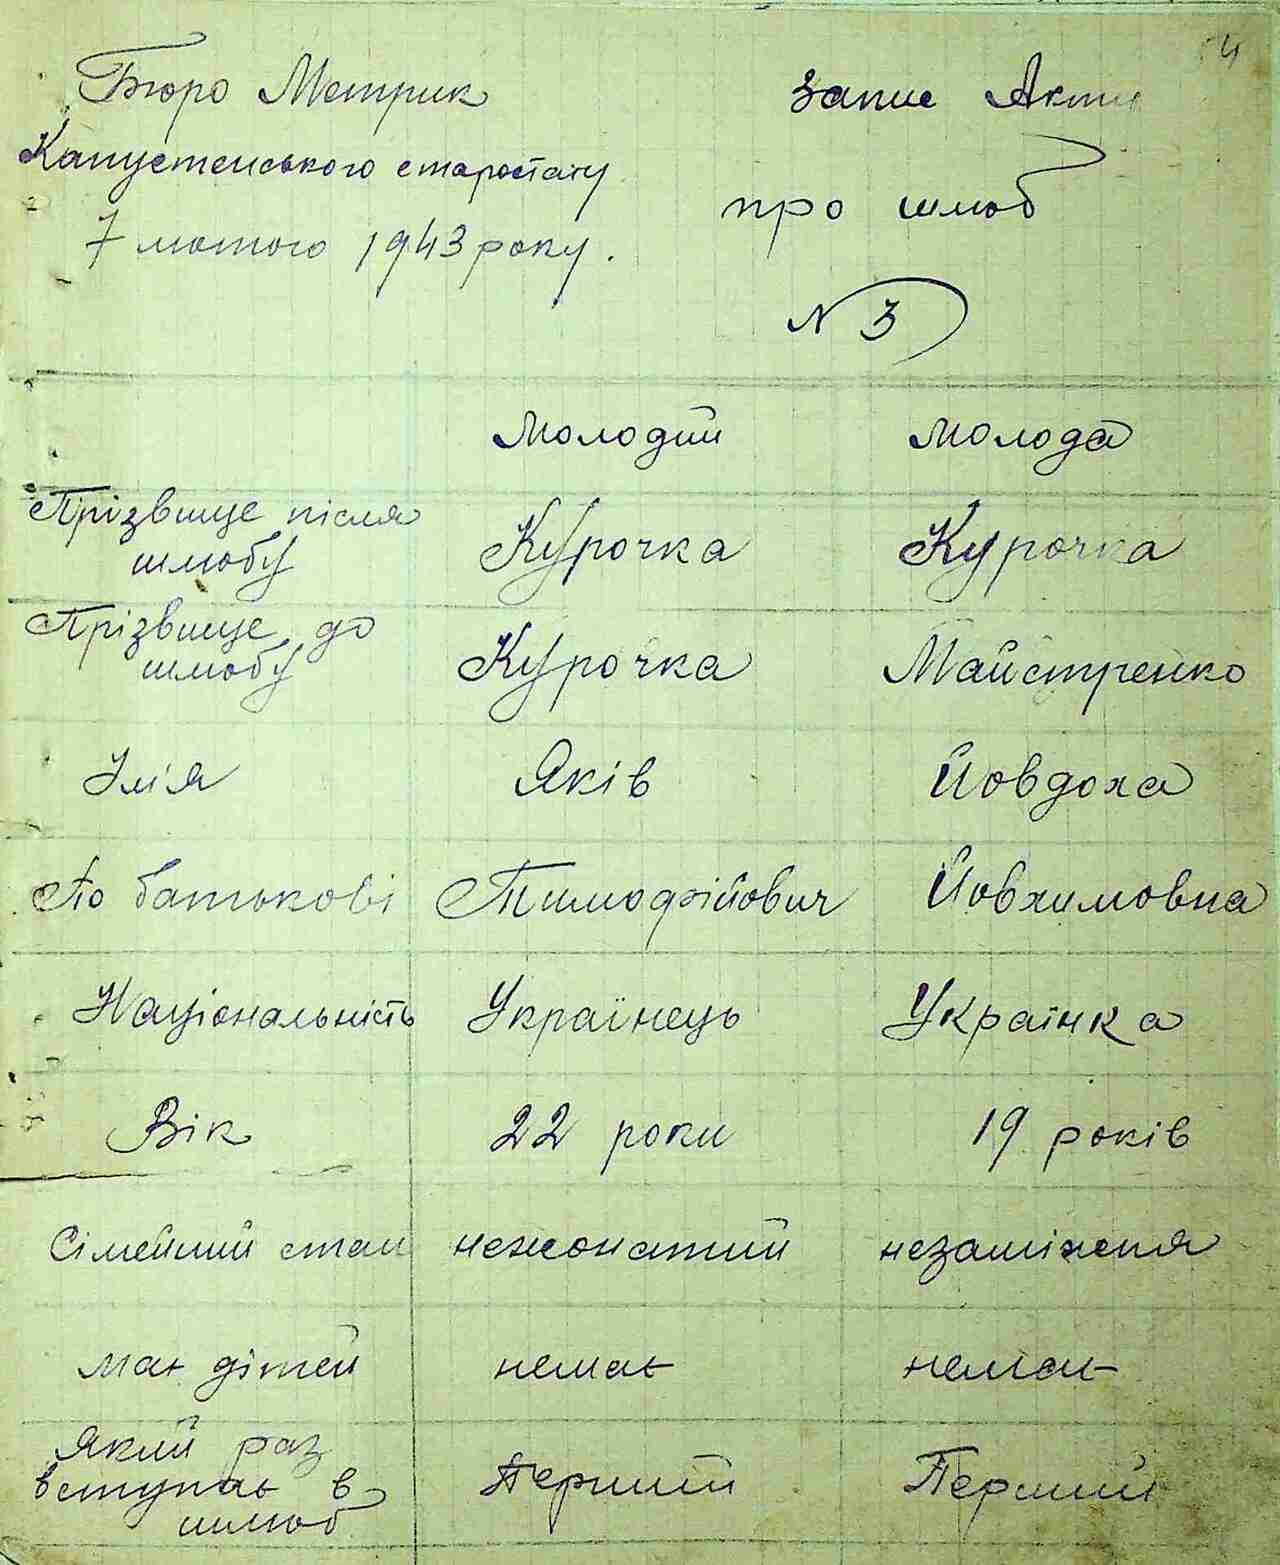 4
Бюро Метрик
Запис Акту
Капустенського старостату
про шлюб
7 лютого 1943 року.
N 3
Молодий Молода
Прізвище після шлюбу Курочка Курочка
Прізвище до шлюбу Курочка Майстренко
Ім'я Яків Йовдоха
По батькові Тимофійович Йовхимовна
Національність Українець Українка
Вік 22 роки 19 років
Сімейний стан нежонатий незаміжня
має дітей немає немає
Який раз вступає в шлюб Перший Перший